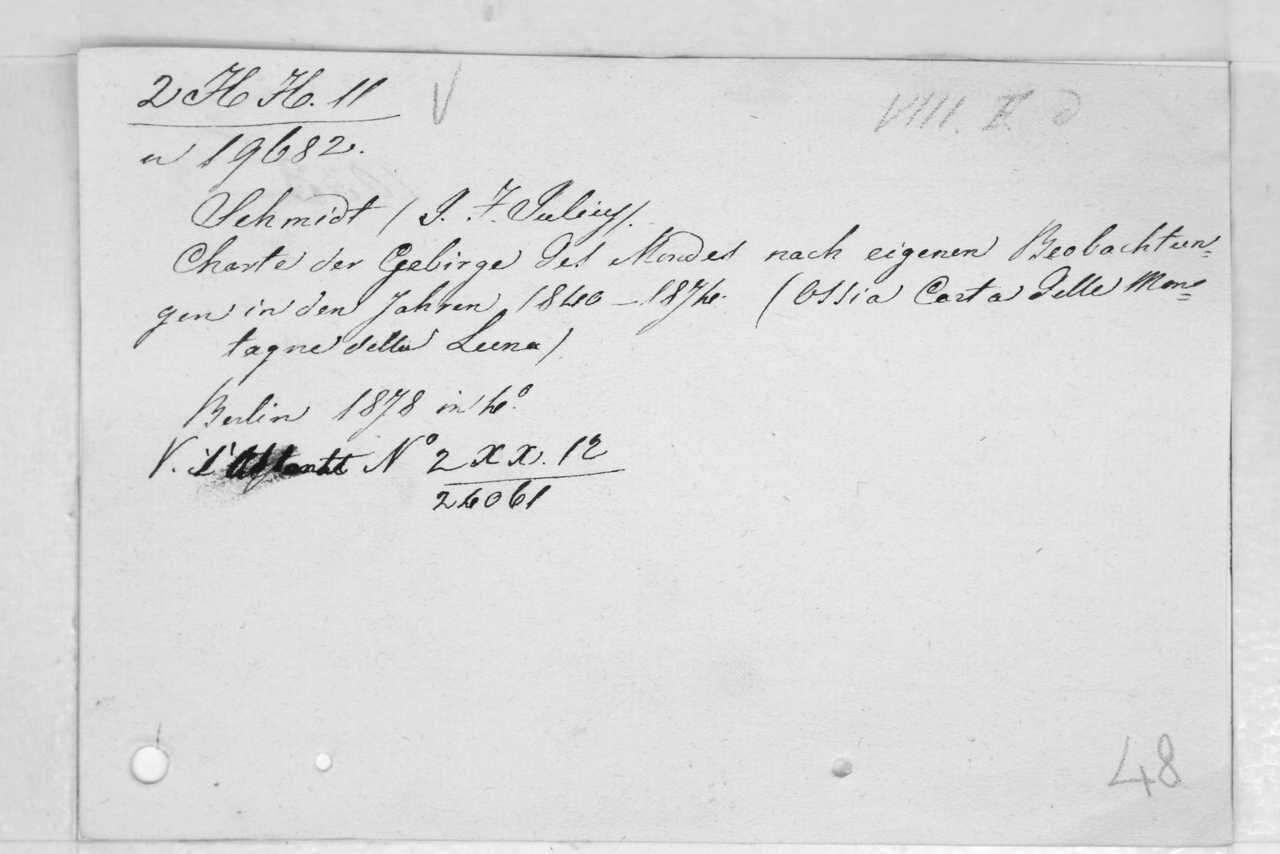 2 H H. 11 V VIII. II d
n 19682.
Schmidt (J. F. Julius).
Charte der Gebirge des Mondes nach eigenen Beobachtun=
gen in den Jahren 1840–1874. (Ossia Carta delle Mon=
tagne della Luna)
Berlin 1878 in 4º.
V. N.º 2 X X. 12
24061
48